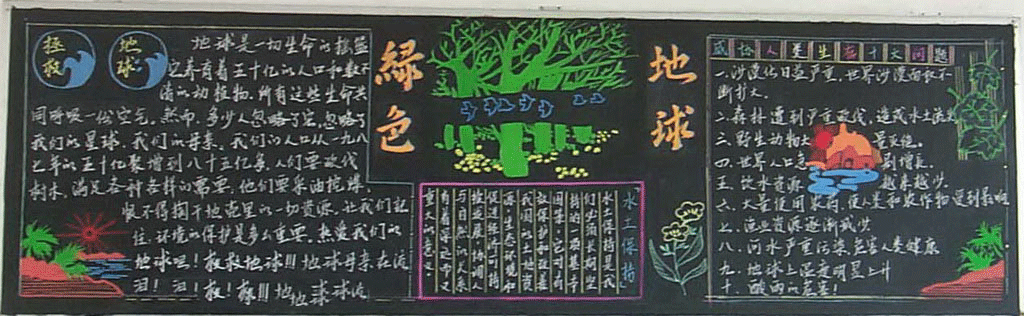 拯救
地球
地球是一切生命的摇篮
它养育着五十亿的人口和数不
清的动植物.所有这些生命共
同呼吸一份空气.然而.多少人忽略了它.忽略了
我们的星球.我们的母亲.我们的人口从一九八
七年的五十亿聚增到八十五亿多.人们要砍伐
树木.满足各种各样的需要.他们要采油挖煤.
恨不得掏干地壳里的一切资源.让我们记
住.环境的保护是多么重要.热爱我们的
地球吧!救救地球!!!地球母亲在流
泪!泪!救!救!!!地地球球流
綠色
地球
水土保持
水土保持是我
们必须长期坚
持的一项基本
国策.它对于
我国的土地资
源
生态环境和
促进经济可持
续发展.协调人
与自然的关系
有着等
重大的意义.
威胁人类生存十大问题
一.沙漠化日益严重.世界沙漠面积不
断扩大.
二.森林遭到严重砍伐.造成水土流失
三.野生动物大量灭绝.
四.世界人口急剧增长.
五.饮水资源越来越少.
六.大量使用农药.使人类和农作物受到影响
七.渔业资源逐渐减少
八.河水严重污染.危害人类健康
九.地球上温度明显上升
十.酸雨的危害!